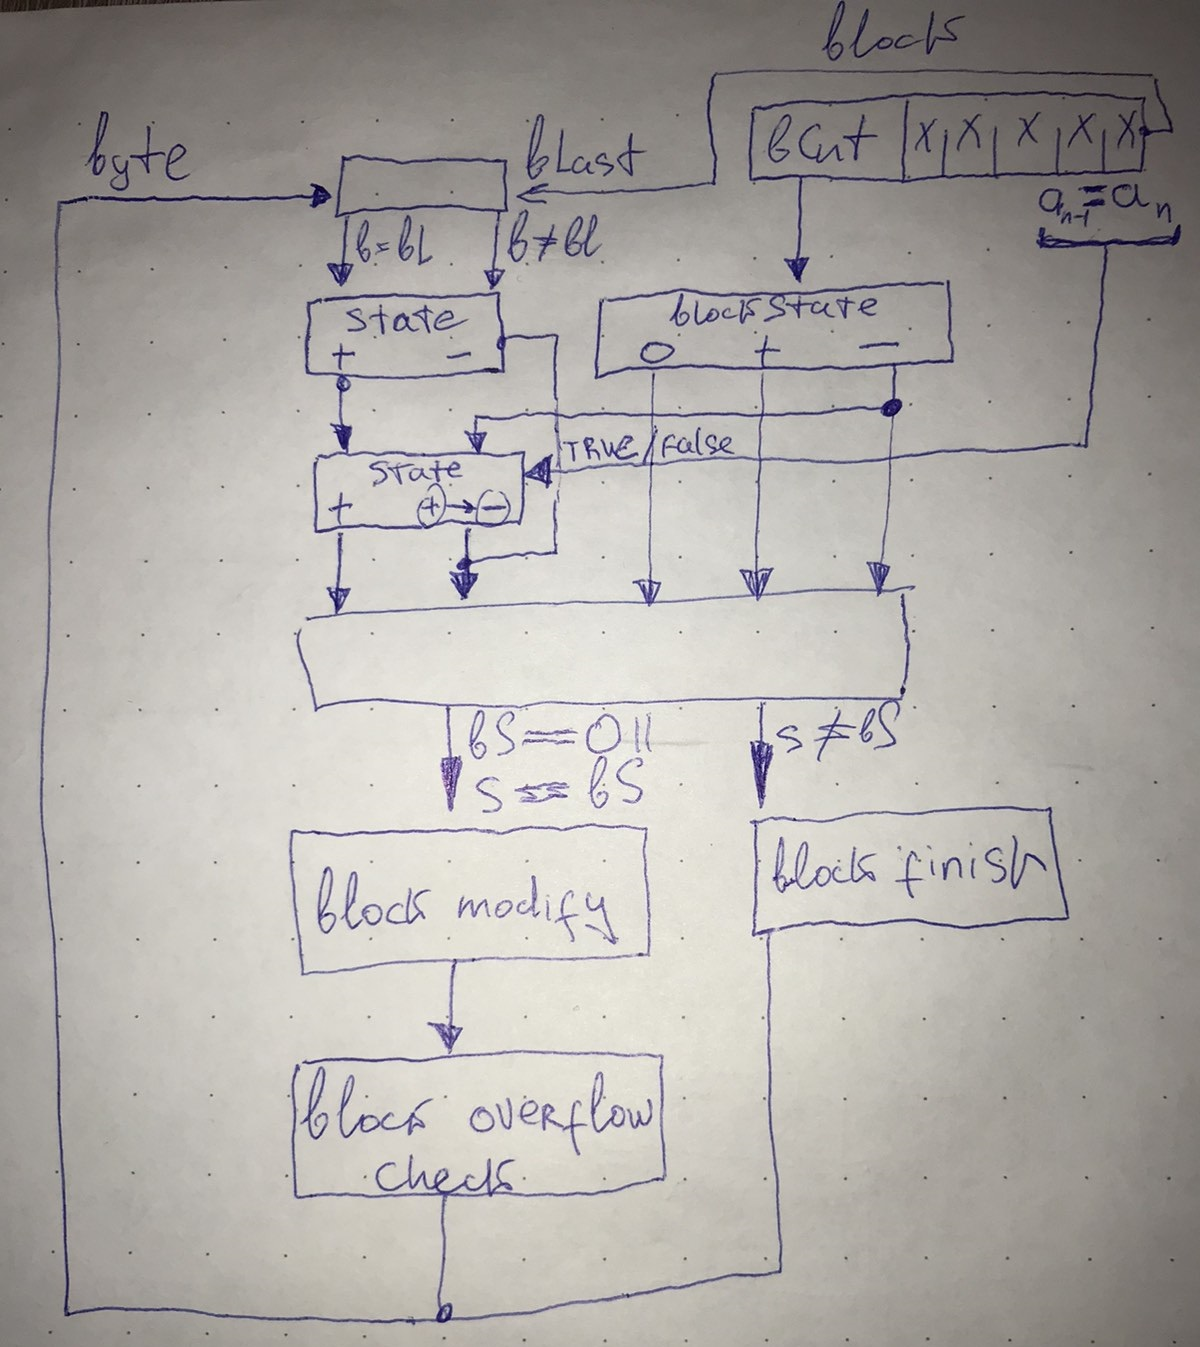 block
byte
bLast
bCnt X X X X X
a n-1 = a n
b=bL
b≠bl
State
+ −
blockState
0 + −
TRUE/False
State
+ ⊕→⊖
bS==0||
S==bS
S≠bS
block modify
block finish
block overflow
check